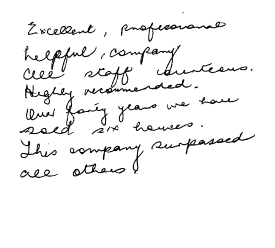 Excellent, professional
helpful, company
All staff courteous.
Highly recommended.
Over forty years we have
sold six houses.
This company surpassed
all others.